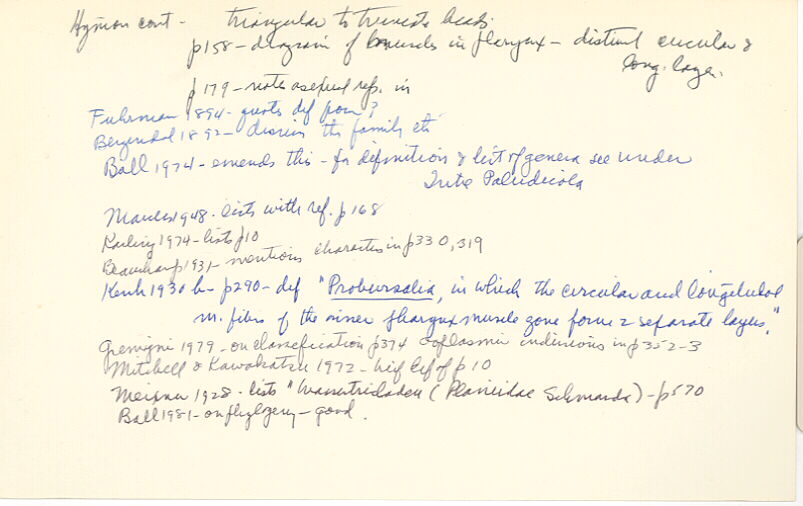 Hyman cont - triangular to truncate heads
p158 - diagram of muscles in pharynx - distinct circular &
long. layer.
p179 - notes asexual rep. in
Fuhrmann 1894 - quotes def from ?
Bergendal 1892 - discuss the family etc
Ball 1974 - emends this - for definition & list of genera see under
Infra Paludicola
Marcus 1948 - lists with ref. p168
Karling 1974 - lists p10
Beauchamp 1931 - mentions characters in p330, 319
Kenk 1930 b - p290 - def "Probursalia, in which the circular and longitudinal
m. fibers of the inner pharynx muscle zone form 2 separate layers."
Gremigni 1979 - on classification p374 cytoplasmic inclusions in p352-3
Mitchell & Kawakatsu 1972 - brief def of p10
Meixner 1928 - lists (Planiidae Schmarda) - p570
Ball 1981 - on phylogeny - good.